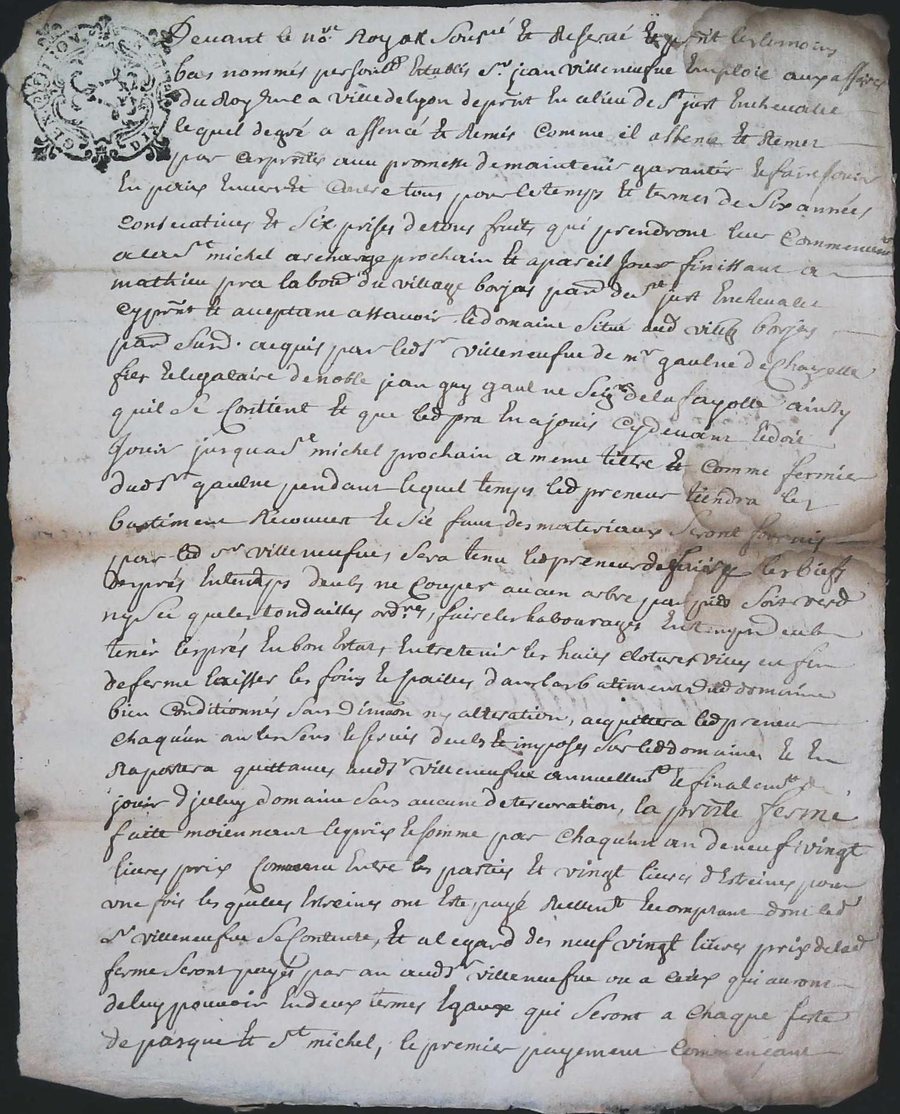 Devant le no.re Royal Sousné et Reservé et p.nt les temoins
bas nommés personll. Establis S.r jean villeneufve Employé aux affaires
du Roy En la ville de lyon de p.nt En ce lieu de S.t just En chevalet
lequel de gré a affencé et Remis Comme il affence et Remet
par ces p.ntes avec promesse de maintenir garantir et faire jouir
En paix Envers et Contre tous pour le temps et termes de Six années
Consecutives et Six prises de tous fruits qui prendront leur Commencem.t
a la S.t michel archange prochain et a pareil jour finissant a
mathieu pra labou.r du village borjas par.sse de S.t just En chevalet
cy p.nt et aceptant assavoir le domaine Situé aud village borjas
par.sse Susd. acquis par led S.r villeneufve de m.r gaulne de
fils et legataire de noble jean guy gaulne Seig.r de la fayolle ainsy
quil Se Contient et que led pra En a jouis Cy devant et doit
jouir jusqua S.t michel prochain a meme tiltre et Comme fermier
dud S.r gaulne pendant lequel temps led preneur tiendra les
bastiments Recouvert et Sié faute des materiaux Seront fournis
par led S.r villeneufve, Sera tenu led preneur de faire les bieffs
des prés En temps deubs ne Couper aucun arbre par pied Soit verd
ny Sec que les tondailles ord.res, faire les labourages En temps deub
tenir les prés En bon Estat, Entretenir les haies clotures vives en fin
de ferme laisser les foins et pailles dans les batiments dud domaine
bien Conditionnés Sans diminon ny alteration, acquittera led preneur
chaqu'un an les Sens et Servis deubs et imposés Sur led domaine et En
Raportera quittances aud S.r villeneufve annuellem.t et finalem.t
jouir d'jceluy domaine Sans aucune deterioration, la p.nte ferme
faitte moiennant le prix et Somme par chaqu'un an de neuf vingt
livres prix Convenu Entre les parties et vingt livres d'Estreines pour
une fois les quelles Estreines ont Esté payé Rellem.t et comptant dont led
S.r villeneufve Se Contente, Et a legard des neuf vingt livres prix de lad
ferme Seront payés par an aud S.r villeneufve ou a Ceux qui auront
de luy pouvoir En deux termes Egaux qui Seront a chaque feste
de pasque et S.t michel, le premier payement Commençant